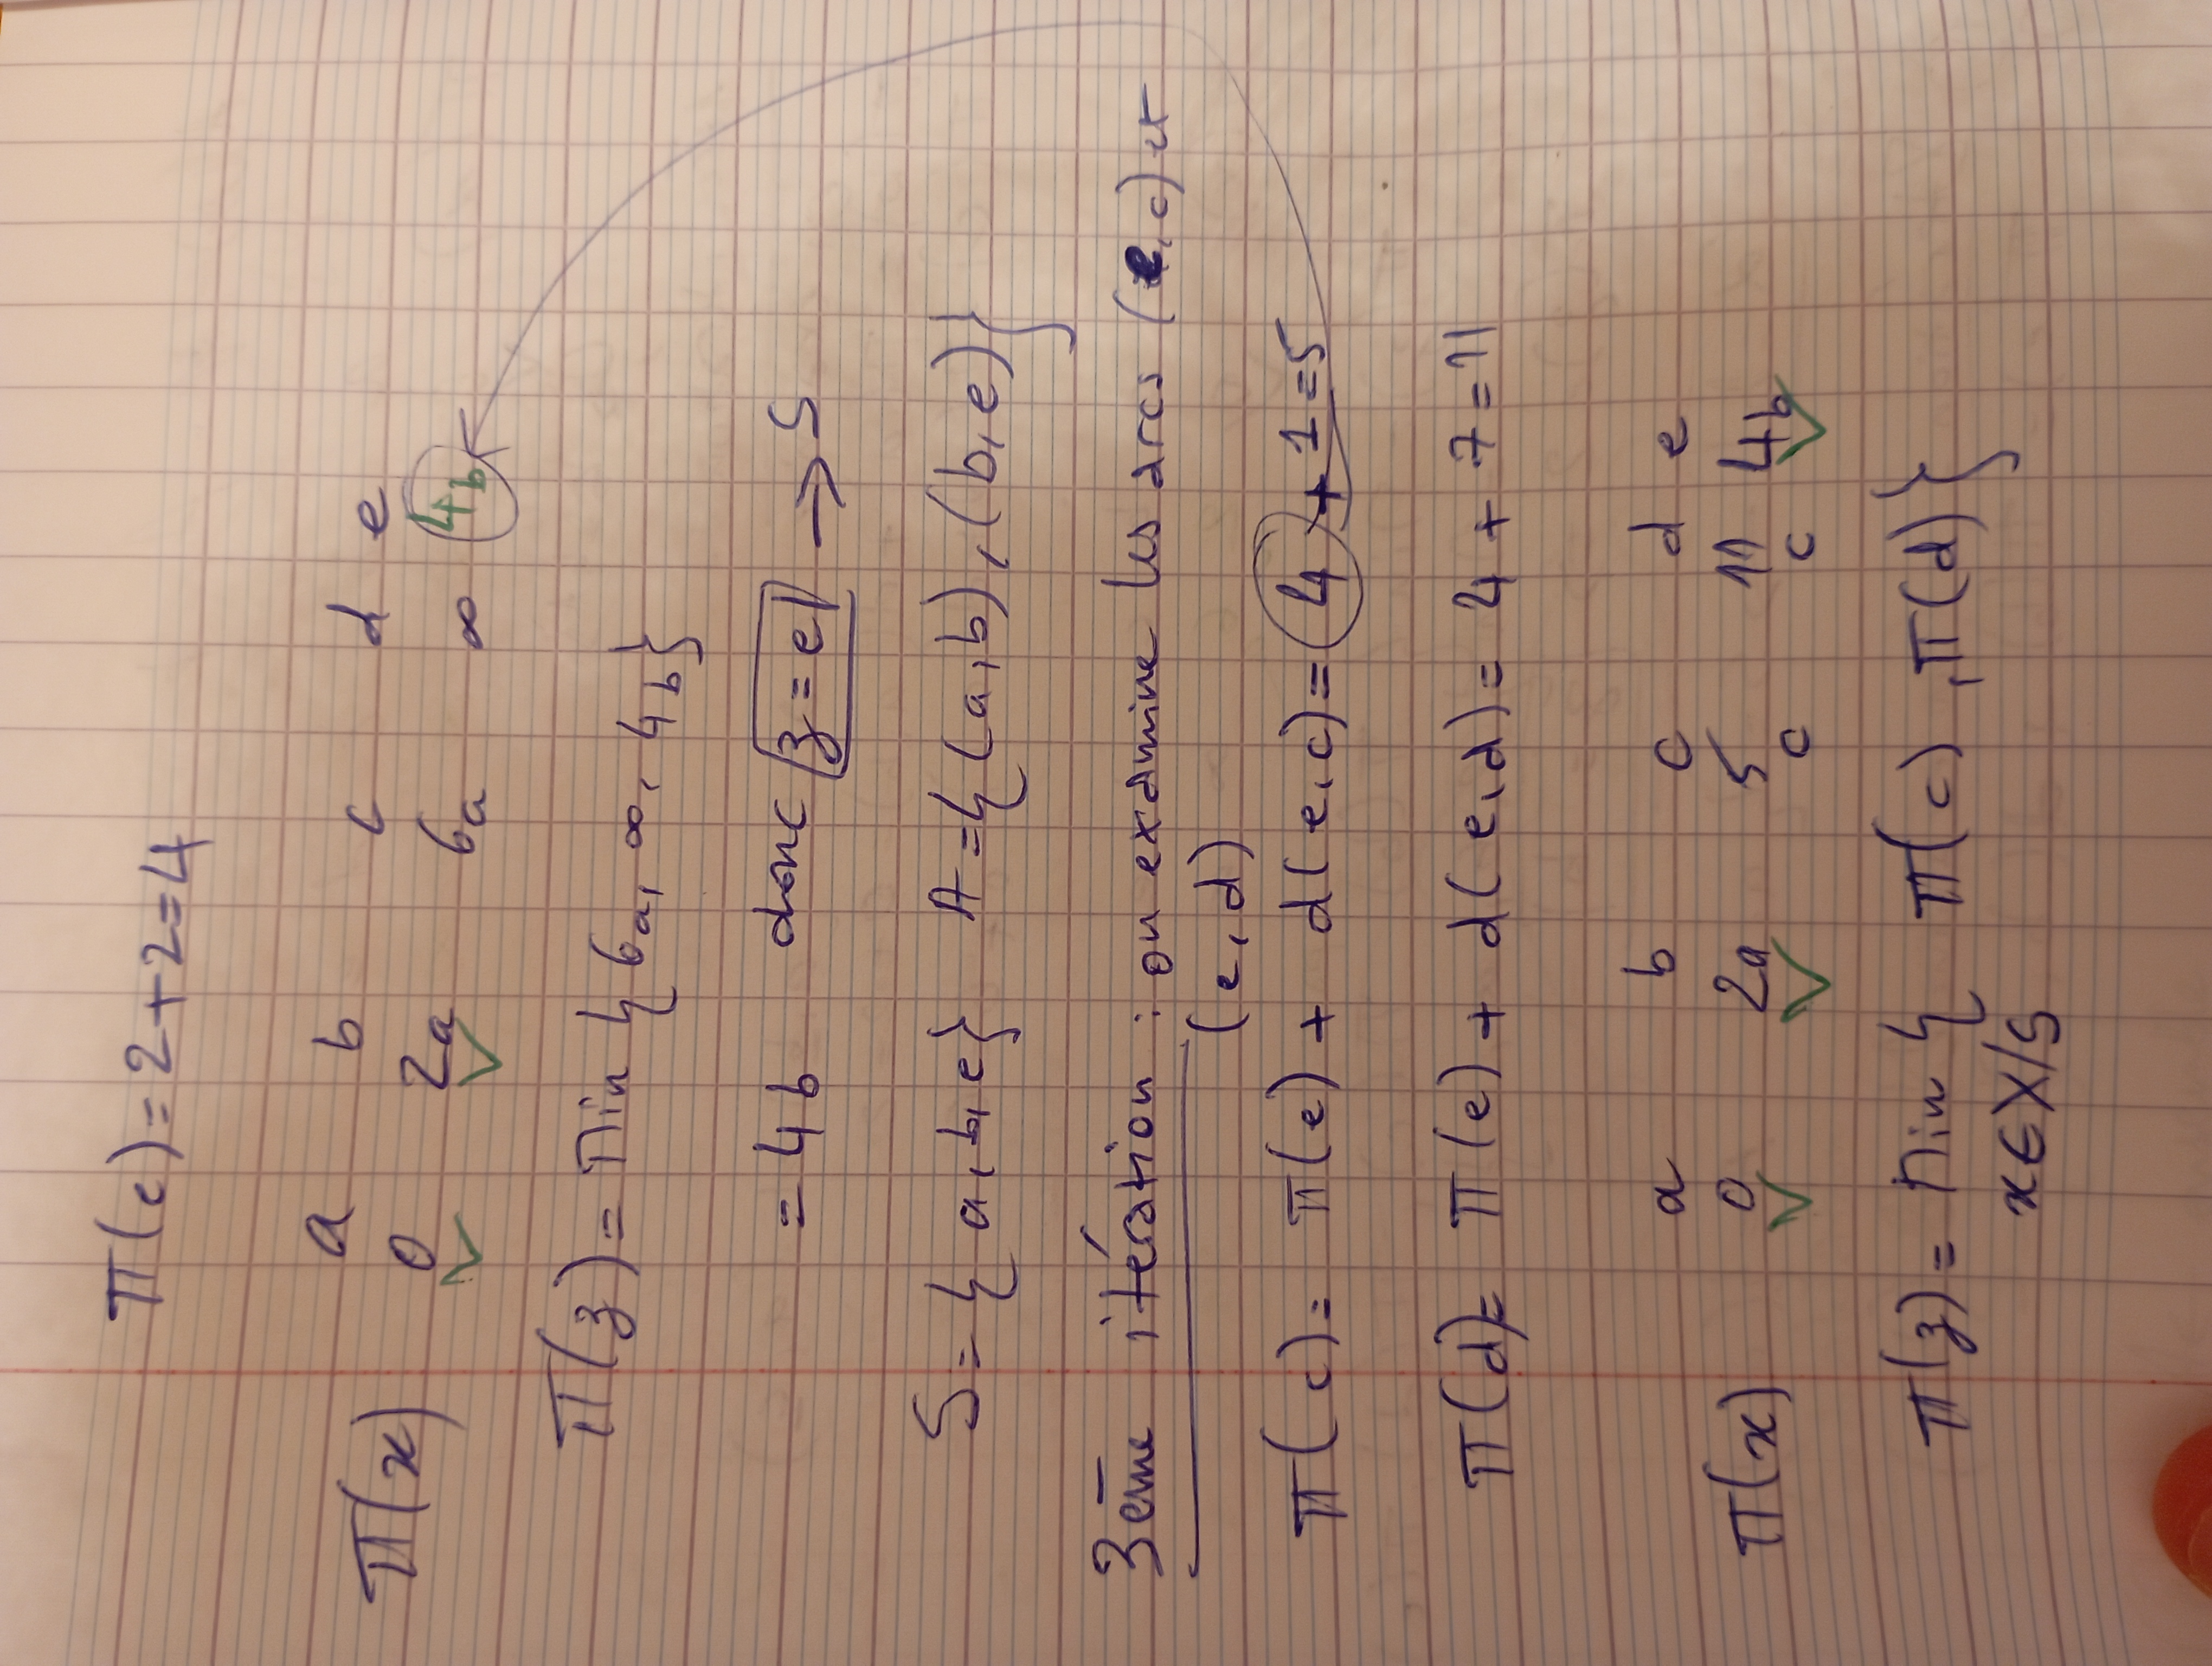 π(e) = 2+2=4
a b c d e
π(x) 0 2a 6a ∞ 4b
π(z) = Min { 6a, ∞, 4b }
= 4b donc z = e → S
S = { a, b, e } A = { (a,b), (b,e) }
3ème itération : on examine les arcs (e,c) et
(e,d)
π(c) = π(e) + d(e,c) = 4 + 1 = 5
π(d) = π(e) + d(e,d) = 4 + 7 = 11
a b c d e
π(x) 0 2a 5c 11c 4b
π(z) = Min { π(c), π(d) }
x∈X/S